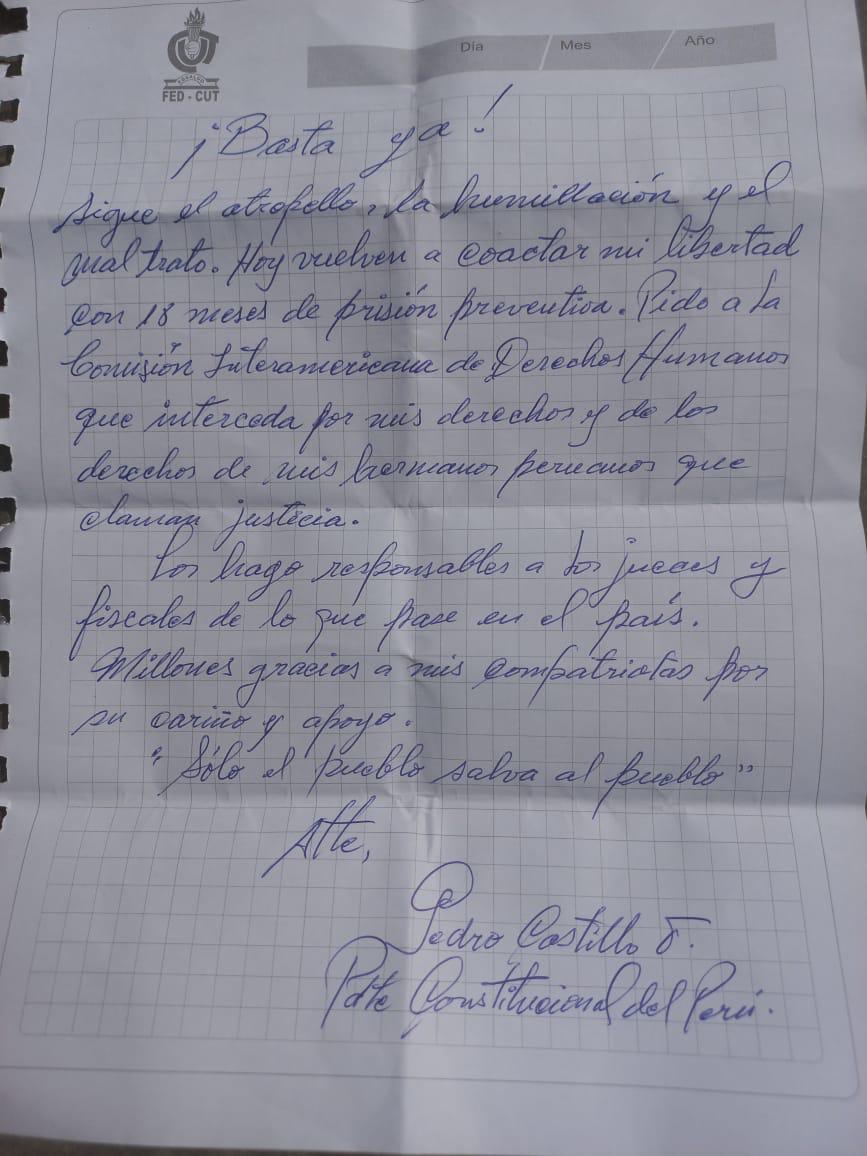 FED - CUT
Día / Mes / Año
¡Basta ya!
Sigue el atropello, la humillación y el
mal trato. Hoy vuelven a coactar mi libertad
con 18 meses de prisión preventiva. Pido a la
Comisión Interamericana de Derechos Humanos
que interceda por mis derechos y de los
derechos de mis hermanos peruanos que
claman justicia.
Los hago responsables a los jueces y
fiscales de lo que pase en el país.
Millones gracias a mis compatriotas por
su cariño y apoyo.
"Sólo el pueblo salva al pueblo"
Atte,
Pedro Castillo T.
Pdte Constitucional del Perú.